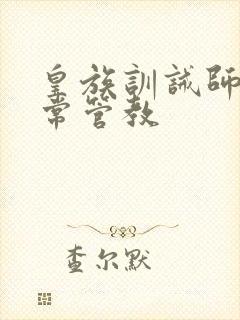 皇族訓誡師
常管教
查尔默